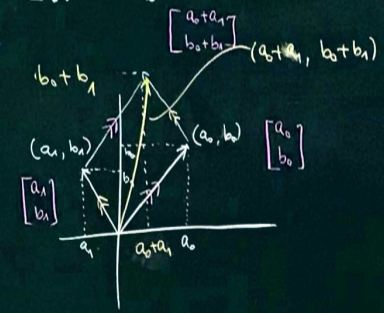 [a₀+a₁
b₀+b₁]
(a₀+a₁, b₀+b₁)
b₀+b₁
(a₁, b₁)
(a₀, b₀)
[a₀
b₀]
[a₁
b₁]
a₁
a₀+a₁
a₀